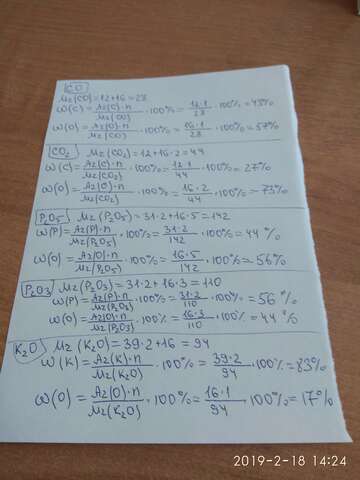 CO
Mr(CO)=12+16=28
ω(C)=Ar(C)·n/Mr(CO)·100%=12·1/28·100%=43%
ω(O)=Ar(O)·n/Mr(CO)·100%=16·1/28·100%=57%
CO₂ Mr(CO₂)=12+16·2=44
ω(C)=Ar(C)·n/Mr(CO₂)·100%=12·1/44·100%=27%
ω(O)=Ar(O)·n/Mr(CO₂)·100%=16·2/44·100%=73%
P₂O5 Mr(P₂O5)=31·2+16·5=142
ω(P)=Ar(P)·n/Mr(P₂O5)·100%=31·2/142·100%=44%
ω(O)=Ar(O)·n/Mr(P₂O5)·100%=16·5/142·100%=56%
P₂O3 Mr(P₂O3)=31·2+16·3=110
ω(P)=Ar(P)·n/Mr(P₂O3)·100%=31·2/110·100%=56%
ω(O)=Ar(O)·n/Mr(P₂O3)·100%=16·3/110·100%=44%
K₂O Mr(K₂O)=39·2+16=94
ω(K)=Ar(K)·n/Mr(K₂O)·100%=39·2/94·100%=83%
ω(O)=Ar(O)·n/Mr(K₂O)·100%=16·1/94·100%=17%
2019-2-18 14:24